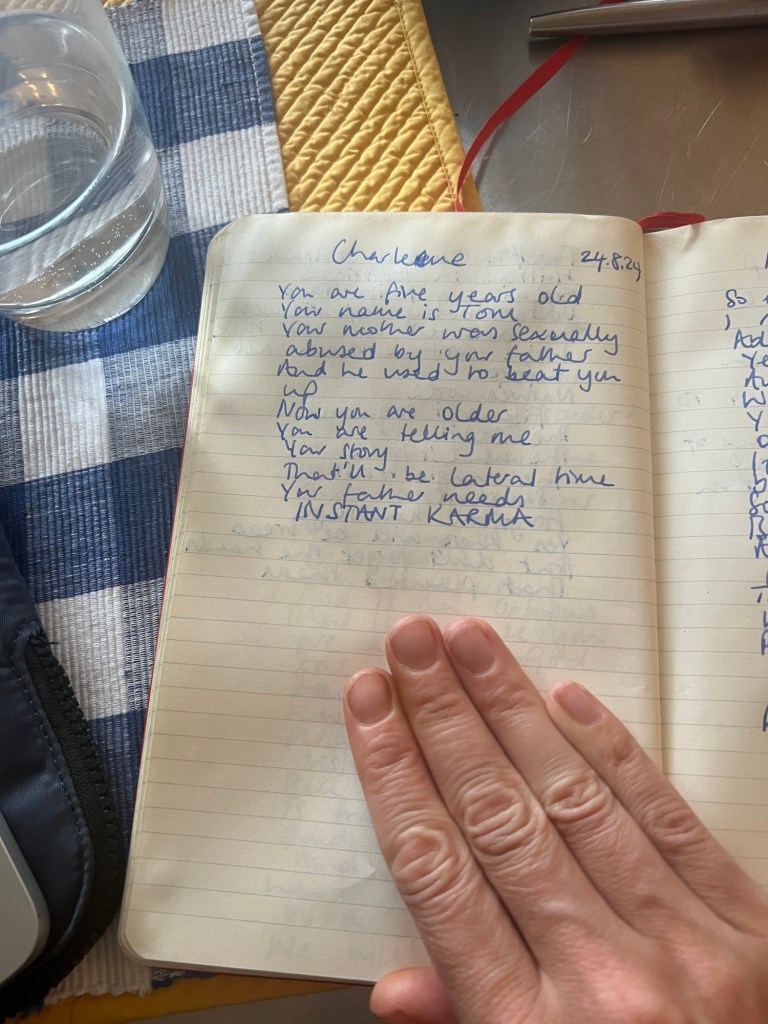 Charlene
24.8.24
You are five years old
Your name is Tom
Your mother was sexually
abused by your father
And he used to beat you
up
Now you are older
You are telling me
Your story
That'll be Lateral time
Your father needs
INSTANT KARMA
So